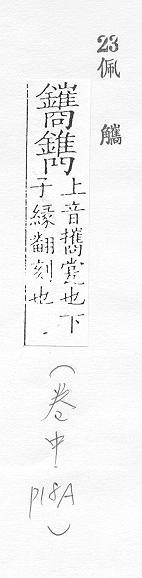 23 佩觿
鑴鐫
上音攜也下
子緣翻刻也
(卷中.p18A)